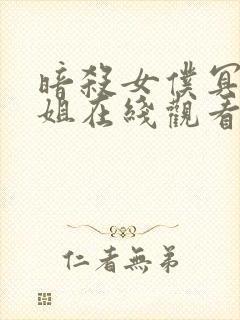 暗殺女僕冥
姐在綫觀看
仁者無弟